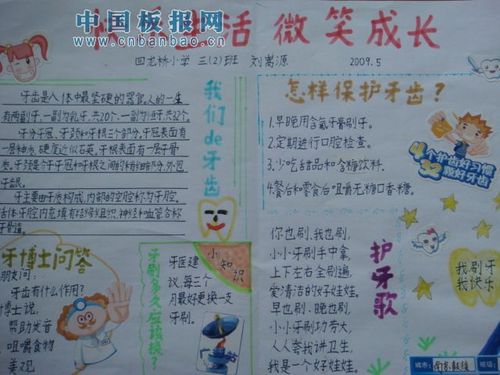 中国板报网
www.cnbanbao.cn
快乐生活 微笑成长
回龙桥小学 三(2)班 刘嵩源
2009.5
我们de牙齿
牙齿是人体中最坚硬的器官,人的一生
有两副牙,一副为乳牙,共20个,一副为恒牙,共32个。
牙分牙冠、牙颈和牙根三个部分,牙冠表面有
一层釉质,硬度近似石英。牙根表面有一层牙骨
质。牙颈是介于牙冠和牙根之间的稍细部分,外包
牙龈。
牙主要由牙质构成,内部的空腔称为牙腔。
活体牙腔内充填有结缔组织、神经和血管合称
牙髓。
怎样保护牙齿?
1.早晚用含氟牙膏刷牙。
2.定期进行口腔检查。
3.少吃甜品和含糖饮料。
4.餐后和零食后咀嚼无糖口香糖。
4个护齿好习惯
颗好牙齿
牙博士问答
朋友问:
牙齿有什么作用?
博士说,
帮助发音
咀嚼食物
美观
牙刷多久应该换?
小知识
牙医建
议,每三个
月最好更换一支
牙刷。
护牙歌
你也刷,我也刷,
小小牙刷手中拿,
上下左右全刷遍,
爱清洁的好娃娃。
早也刷、晚也刷,
小小牙刷功劳大,
人人夸我讲卫生,
我是一个好娃娃。
我刷牙
我快乐
城市: